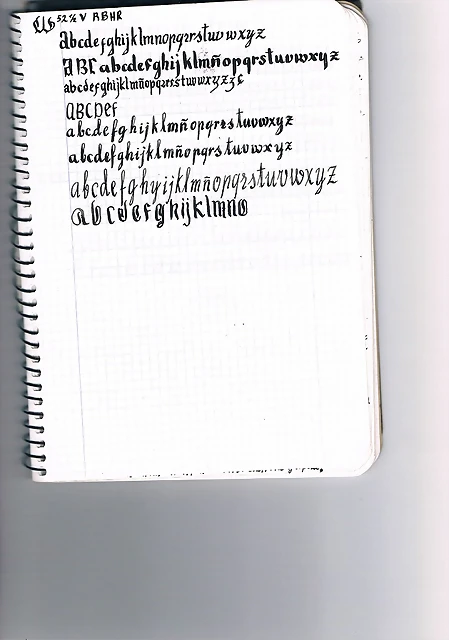 52 ½ V ABHR
abcdefghijklmnopqrrstuvwxyz
ABC abcdefghijklmñopqrstuvwxyz
abcdefghijklmñopqrsstuvwxyzzc
ABCDEF
abcdefghijklmñopqrrstuvwxyz
abcdefghijklmñopqrstuvwxyz
abcdefghyijklmñopqrstuvwxyz
abcdefghijklmno